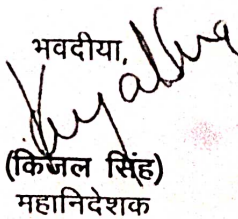 भवदीया,
(किंजल सिंह)
महानिदेशक